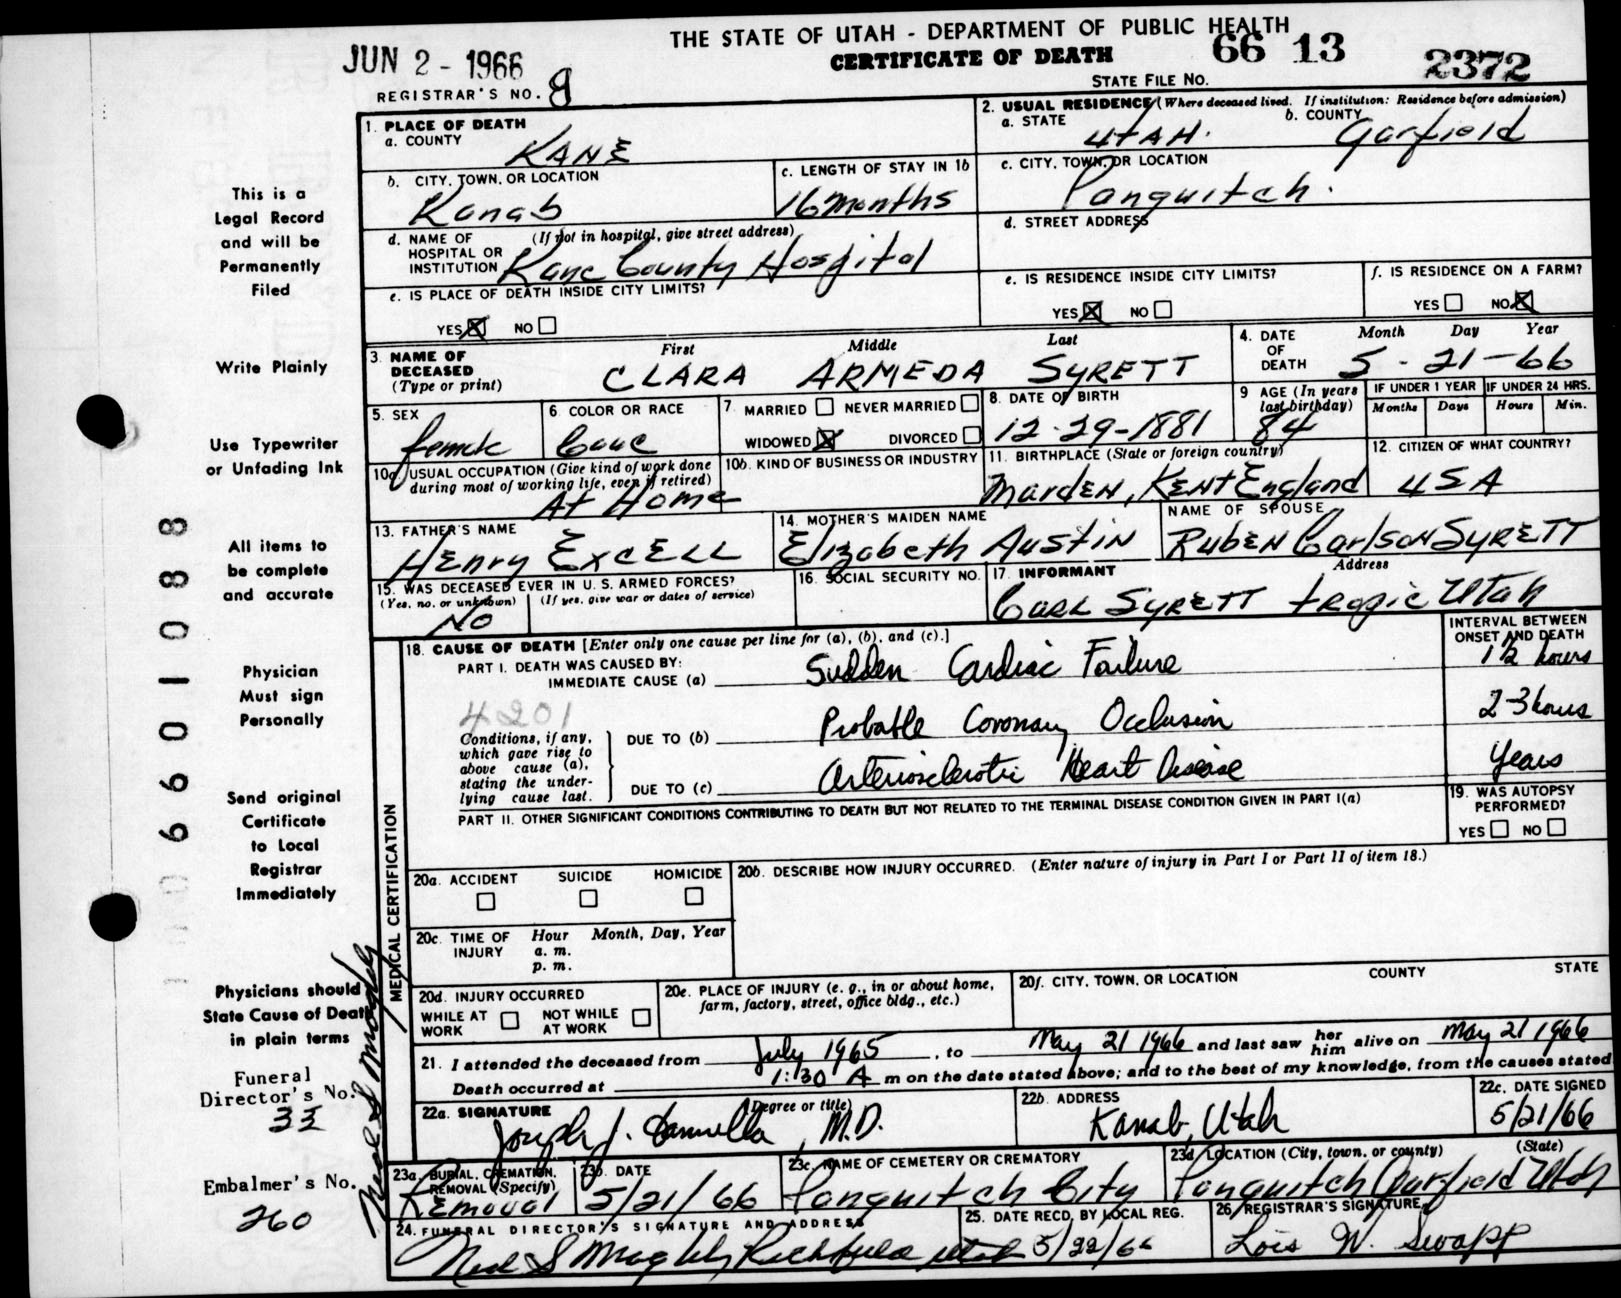 THE STATE OF UTAH - DEPARTMENT OF PUBLIC HEALTH
JUN 2 - 1966
CERTIFICATE OF DEATH
66 13 2372
REGISTRAR'S NO. 8
STATE FILE NO.
1. PLACE OF DEATH
a. COUNTY
KANE
2. USUAL RESIDENCE (Where deceased lived. If institution: Residence before admission)
a. STATE UTAH.
b. COUNTY Garfield
b. CITY, TOWN, OR LOCATION
Kanab
c. LENGTH OF STAY IN 1b
16 months
c. CITY, TOWN, OR LOCATION
Panguitch.
d. NAME OF HOSPITAL OR INSTITUTION (If not in hospital, give street address)
Kane County Hospital
d. STREET ADDRESS
e. IS PLACE OF DEATH INSIDE CITY LIMITS?
YES X NO
e. IS RESIDENCE INSIDE CITY LIMITS?
YES X NO
f. IS RESIDENCE ON A FARM?
YES NO X
3. NAME OF DECEASED (Type or print)
First Middle Last
CLARA ARMEDA SYRETT
4. DATE OF DEATH
Month Day Year
5 - 21 - 66
5. SEX
female
6 COLOR OR RACE
Cauc
7. MARRIED NEVER MARRIED
WIDOWED X DIVORCED
8. DATE OF BIRTH
12-29-1881
9 AGE (In years last birthday)
84
IF UNDER 1 YEAR
Months Days
IF UNDER 24 HRS.
Hours Min.
10a. USUAL OCCUPATION (Give kind of work done during most of working life, even if retired)
At Home
10b. KIND OF BUSINESS OR INDUSTRY
11. BIRTHPLACE (State or foreign country)
Marden, Kent England
12. CITIZEN OF WHAT COUNTRY?
USA
13. FATHER'S NAME
Henry Excell
14. MOTHER'S MAIDEN NAME
Elizabeth Austin
NAME OF SPOUSE
Ruben Carlson Syrett
15. WAS DECEASED EVER IN U.S. ARMED FORCES?
(Yes, no. or unknown) (If yes, give war or dates of service)
No
16. SOCIAL SECURITY NO.
17. INFORMANT Address
Carl Syrett Tropic Utah
18. CAUSE OF DEATH [Enter only one cause per line for (a), (b), and (c).]
INTERVAL BETWEEN ONSET AND DEATH
PART I. DEATH WAS CAUSED BY:
IMMEDIATE CAUSE (a) Sudden Cardiac Failure 1½ hours
4201
Conditions, if any, which gave rise to above cause (a), stating the underlying cause last.
DUE TO (b) Probable Coronary Occlusion 2-3 hours
DUE TO (c) Arteriosclerotic Heart Disease years
PART II. OTHER SIGNIFICANT CONDITIONS CONTRIBUTING TO DEATH BUT NOT RELATED TO THE TERMINAL DISEASE CONDITION GIVEN IN PART I(a)
19. WAS AUTOPSY PERFORMED?
YES NO
MEDICAL CERTIFICATION
20a. ACCIDENT SUICIDE HOMICIDE
20b. DESCRIBE HOW INJURY OCCURRED. (Enter nature of injury in Part I or Part II of item 18.)
20c. TIME OF INJURY Hour Month, Day, Year
a. m.
p. m.
20d. INJURY OCCURRED
WHILE AT WORK NOT WHILE AT WORK
20e. PLACE OF INJURY (e. g., in or about home, farm, factory, street, office bldg., etc.)
20f. CITY, TOWN, OR LOCATION COUNTY STATE
21. I attended the deceased from July 1965, to May 21 1966 and last saw her him alive on May 21 1966
Death occurred at 1:30 A m on the date stated above; and to the best of my knowledge, from the causes stated
22a. SIGNATURE (Degree or title)
Joseph J. M.D.
22b. ADDRESS
Kanab, Utah
22c. DATE SIGNED
5/21/66
23a. BURIAL, CREMATION, REMOVAL (Specify)
Removal
23b. DATE
5/21/66
23c. NAME OF CEMETERY OR CREMATORY
Panguitch City
23d. LOCATION (City, town, or county) (State)
Panguitch Garfield Utah
24. FUNERAL DIRECTOR'S SIGNATURE AND ADDRESS
Neal S Magleby Richfield Utah
25. DATE RECD. BY LOCAL REG.
5/22/66
26. REGISTRAR'S SIGNATURE
Lois W. Swapp
This is a
Legal Record
and will be
Permanently
Filed
Write Plainly
Use Typewriter
or Unfading Ink
All items to
be complete
and accurate
Physician
Must sign
Personally
Send original
Certificate
to Local
Registrar
Immediately
Physicians should
State Cause of Death
in plain terms
Funeral
Director's No.
33
Embalmer's No.
260
Neal S Magleby
06601088